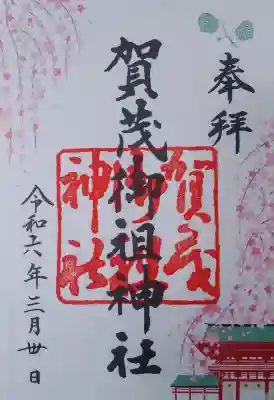 奉拝
賀茂御祖神社
令和六年三月廿日
賀茂
神社